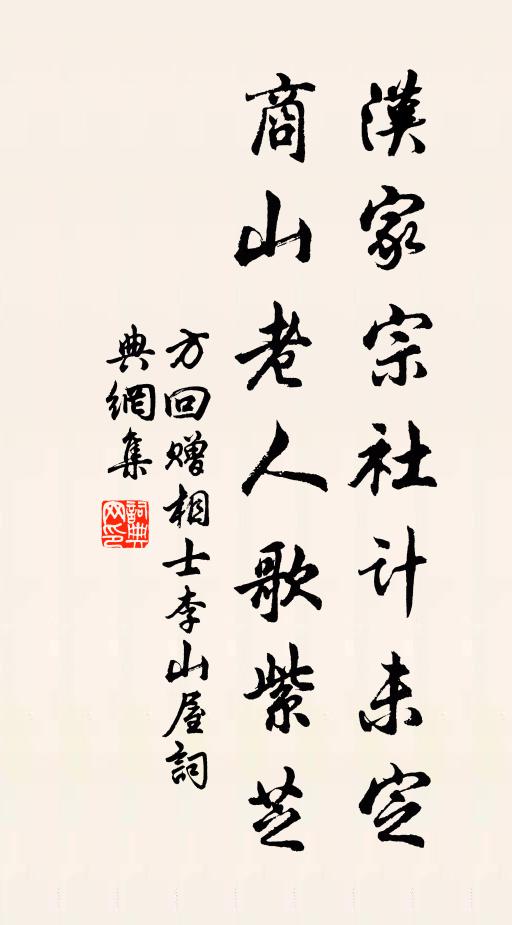 漢家宗社计未定
商山老人歌紫芝
方回赠相士李山屋詞
典網集
詞典网印